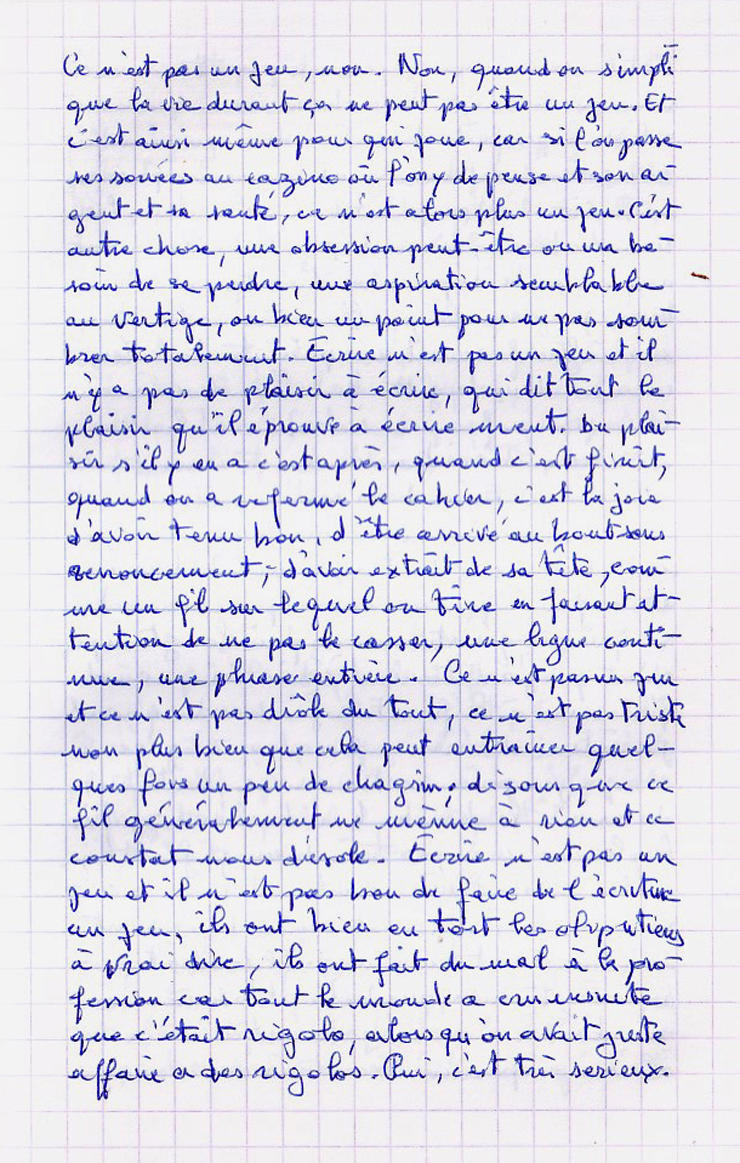 Ce n'est pas un jeu, non. Non, quand on s'impli
que la vie durant ça ne peut pas être un jeu. Et
c'est ainsi même pour qui joue, car si l'on passe
ses soirées au cazino où l'on y dépense et son ar
gent et sa santé, ce n'est alors plus un jeu. C'est
autre chose, une obsession peut-être ou un be-
soin de se perdre, une aspiration semblable
au vertige, ou bien un point pour ne pas som-
brer totalement. Ecrire n'est pas un jeu et il
n'y a pas de plaisir à écrire, qui dit tout le
plaisir qu'il éprouve à écrire ment. Du plai-
sir s'il y en a c'est après, quand c'est finit,
quand on a refermé le cahier, c'est la joie
d'avoir tenu bon, d'être arrivé au bout sans
renoncement, d'avoir extrait de sa tête, com
me un fil sur lequel on tire en faisant at-
tention de ne pas le casser, une ligne conti-
nue, une phrase entière. Ce n'est pas un jeu
et ce n'est pas drôle du tout, ce n'est pas triste
non plus bien que cela peut entraîner quel-
ques fois un peu de chagrin, disons que ce
fil généralement ne mènne à rien et ce
constat nous désole. Ecrire n'est pas un
jeu et il n'est pas bon de faire de l'écriture
un jeu, ils ont bien eu tort les oulipotiens
à vrai dire, ils ont fait du mal à la pro-
fession car tout le monde a cru ensuite
que c'était rigolo, alors qu'on avait juste
affaire a des rigolos. Oui, c'est très serieux.